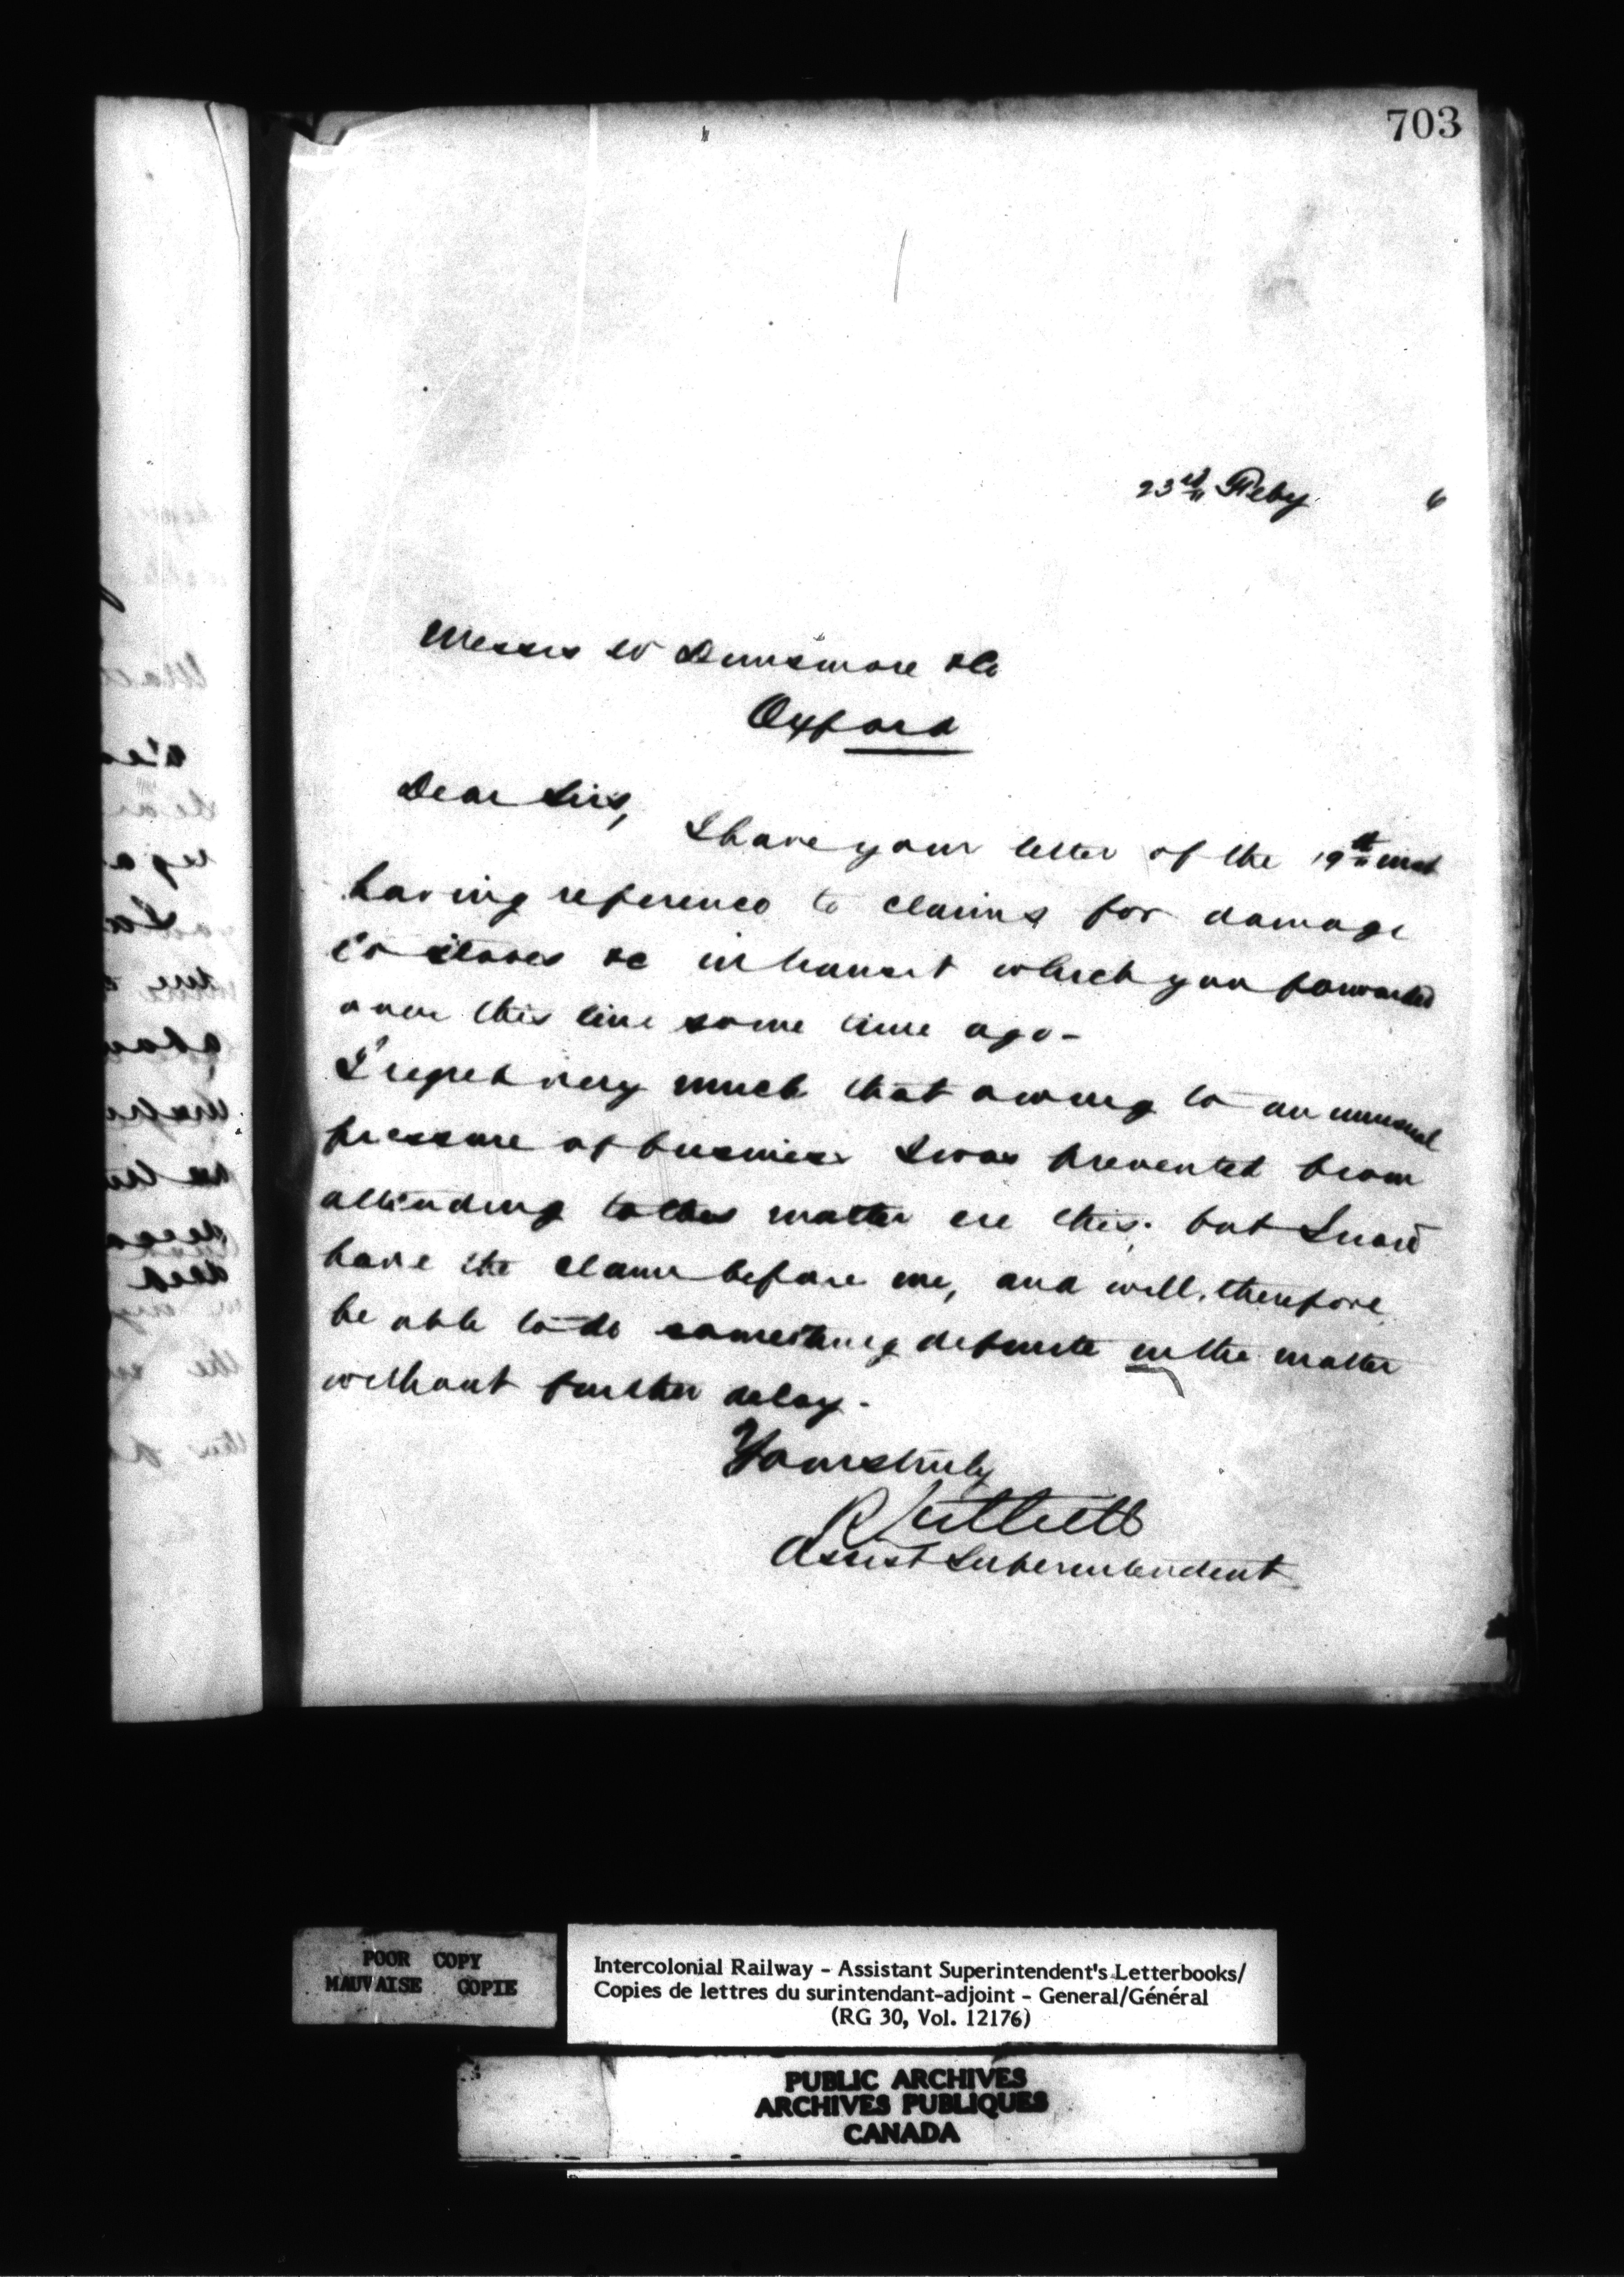 703
23rd Feby 6
Messrs W Dunsmore & Co
Oxford
Dear Sirs,
I have your letter of the 19th inst
having reference to claims for damage
to stoves &c in transit which you forwarded
over this line some time ago -
I regret very much that owing to an unusual
pressure of business I was prevented from
attending to this matter ere this. but I now
have the claim before me, and will, therefore,
be able to do something definite in the matter
without further delay.
Yours truly
Assist Superintendent
POOR COPY
MAUVAISE COPIE
Intercolonial Railway - Assistant Superintendent's Letterbooks/
Copies de lettres du surintendant-adjoint - General/Général
(RG 30, Vol. 12176)
PUBLIC ARCHIVES
ARCHIVES PUBLIQUES
CANADA